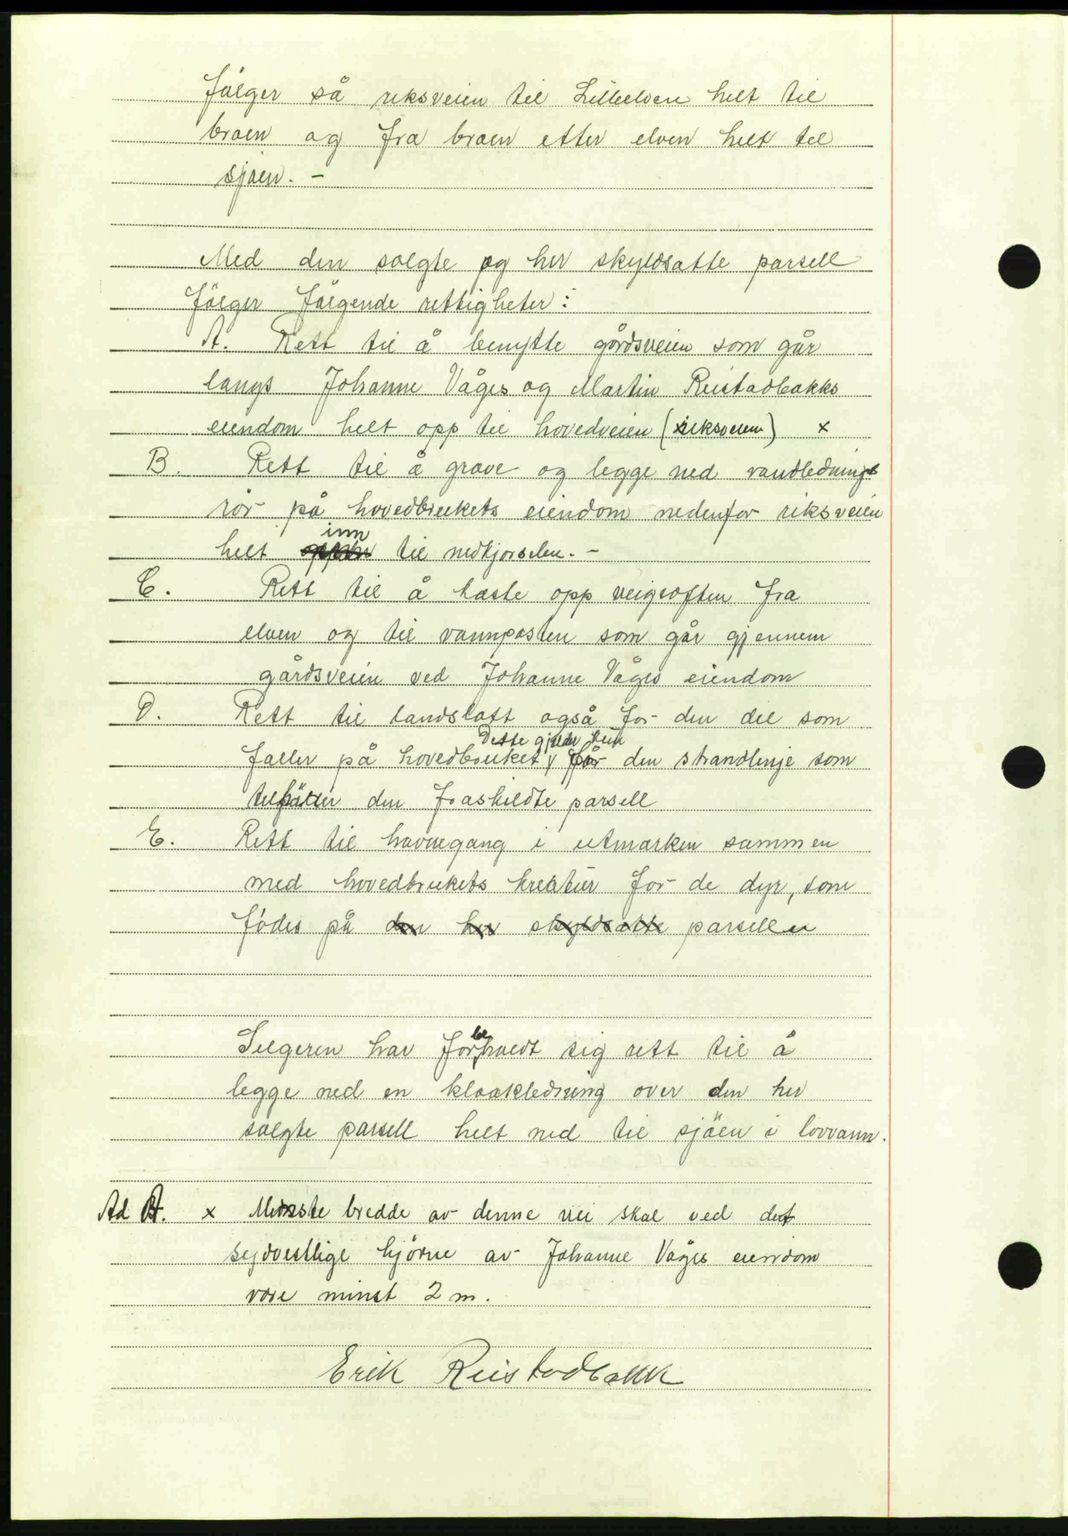 følger så riksveien til Lilleelven helt til
broen og fra broen etter elven helt til
sjøen. -
Med den solgte og her skyldsatte parsell
følger følgende rettigheter:
A. Rett til å benytte gårdsveien som går
langs Johanne Våges og Martin Reistadbakks
eiendom helt opp til hovedveien (riksveien) x
B. Rett til å grave og legge ned vandlednings
rør på hovedbrukets eiendom nedenfor riksveien
helt inn til nedkjørselen. -
C. Rett til å kaste opp veigrøften fra
elven og til vannposten som går gjennem
gårdsveien ved Johanne Våges eiendom
D. Rett til landslott også for den del som
faller på hovedbruket, Dette gjelder kun den strandlinje som
tilfaller den fraskildte parsell
E. Rett til havnegang i utmarken sammen
med hovedbrukets kreatur for de dyr, som
fødes på den her skyldsatte parsellen
Selgeren har forbeholdt sig rett til å
legge ned en kloakledning over den her
solgte parsell helt ned til sjøen i lovvann.
Ad A. x Minste bredde av denne vei skal ved det
sydvestlige hjørne av Johanne Våges eiendom
være minst 2 m.
Erik Reistadbakk